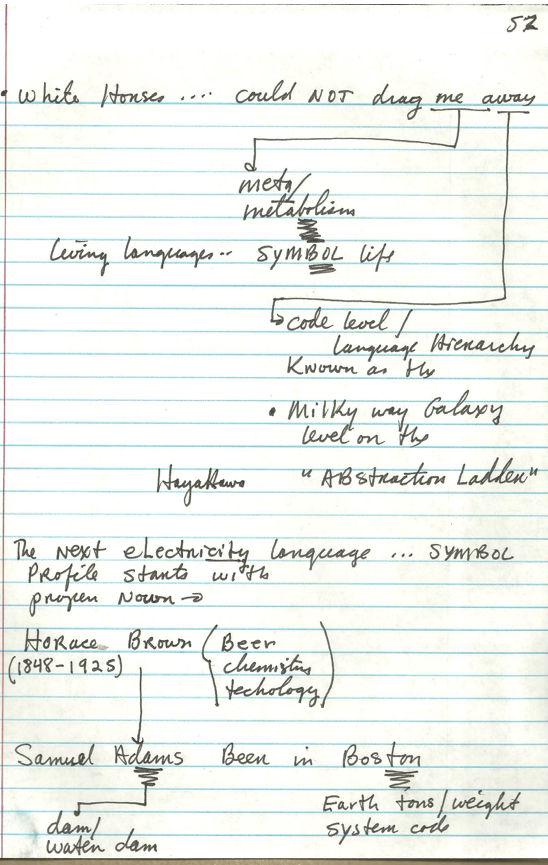 52
• White Horses .... could NOT drag me away
meta/
metabolism
Living languages.. SYMBOL life
code level /
Language Hierarchy
Known as the
• Milky way Galaxy
level on the
Hayakawa "ABstraction Ladder"
The next electricity language ... SYMBOL
Profile starts with
proper Noun →
Horace Brown (Beer
(1848-1925) chemistry
techology)
Samuel Adams Beer in Boston
Earth tons/weight
dam/ system code
water dam